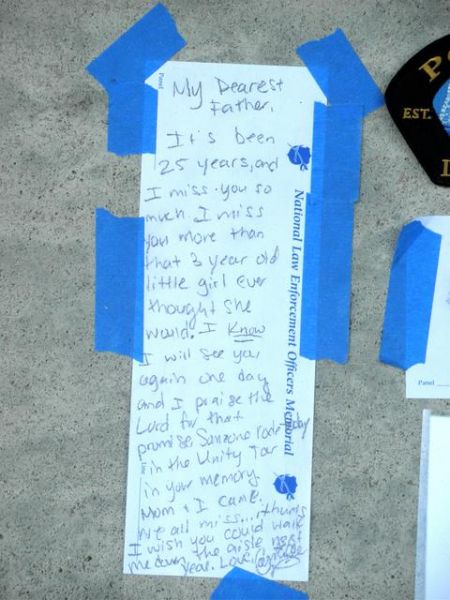 My Dearest
Father,
It's been
25 years, and
I miss you so
much. I miss
you more than
that 3 year old
little girl ever
thought she
would. I Know
I will see you
again one day
and I praise the
Lord for that
promise. Someone rode today
in the Unity Tour
in your memory
Mom & I came.
We all miss...
I wish you could walk
me down the aisle next
year. Love,
National Law Enforcement Officers Memorial
Panel
EST.
Panel